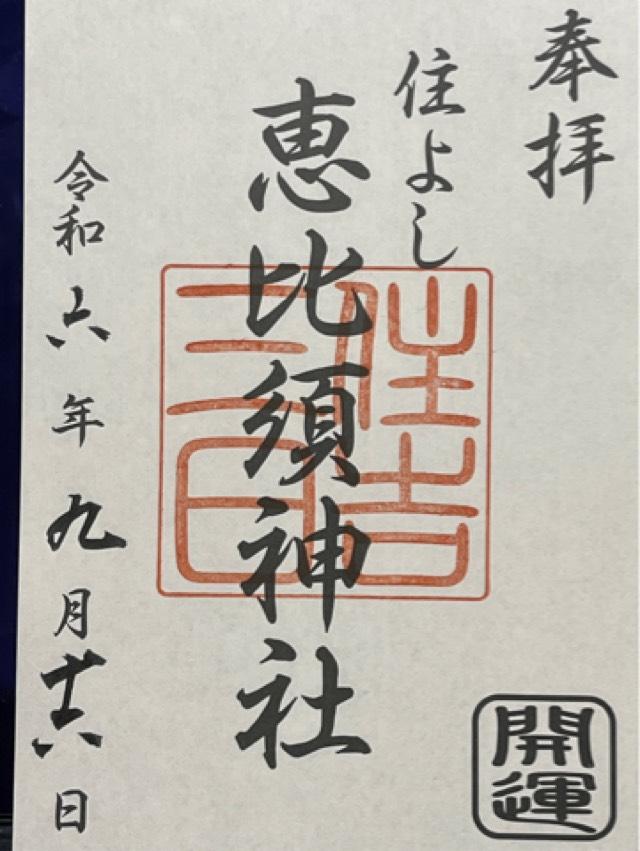 奉拝
住よし
恵比須神社
住吉
三日
令和六年九月廿六日
開運